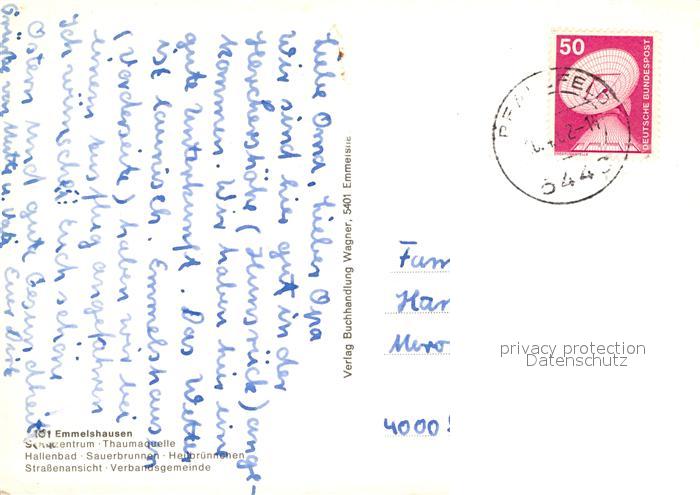 Liebe Oma, lieber Opa
wir sind hier gut in der
Herchershöhe (Hunsrück) ange-
kommen. Wir haben hier eine
gute Unterkunft. Das Wetter
ist launisch. Emmelshausen
(Vorderseite) haben wir bei
einem Ausflug angefahren
Ich wünsche Euch schöne
Ostern und gute Gesundheit
Grüße von Mutti u. Vati Euer Dirk
5401 Emmelshausen
Schulzentrum · Thaumaquelle
Hallenbad · Sauerbrunnen · Heilbrünnchen
Straßenansicht · Verbandsgemeinde
Verlag Buchhandlung Wagner, 5401 Emmelshs
50
DEUTSCHE BUNDESPOST
Fam
Har
Mero
4000
privacy protection
Datenschutz